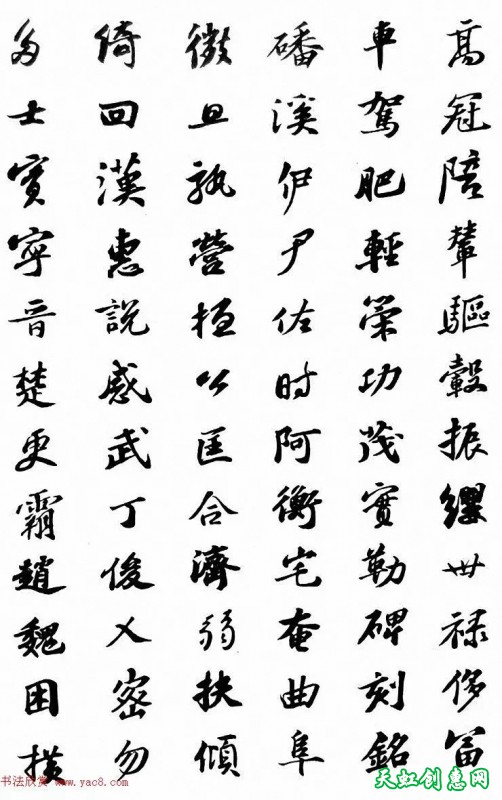 高冠陪輦驅轂振纓世祿侈富
車駕肥輕策功茂實勒碑刻銘
磻溪伊尹佐时阿衡宅奄曲阜
微旦孰營桓公匡合濟弱扶傾
綺回漢惠說感武丁俊乂密勿
多士實寧晉楚更霸趙魏困橫
书法欣赏 www.yac8.com
天虹创惠网